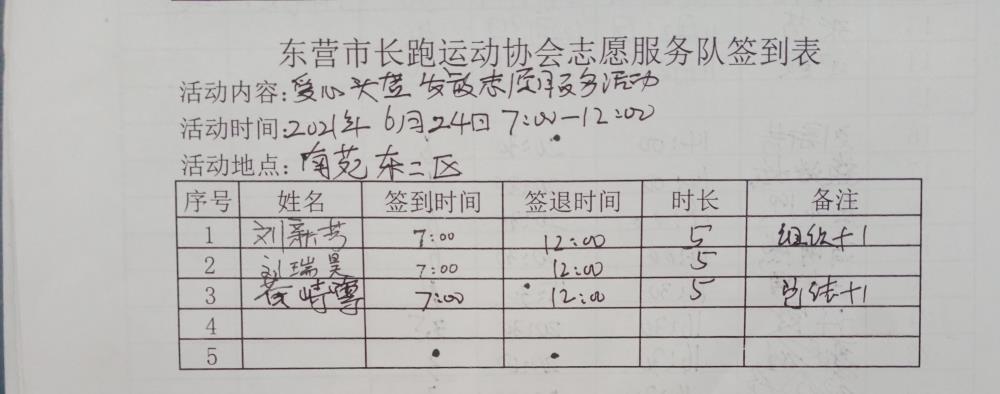 东营市长跑运动协会志愿服务队签到表
活动内容:爱心头盔发放志愿服务活动
活动时间:2021年6月24日 7:00-12:00
活动地点:南苑东二区
序号 姓名 签到时间 签退时间 时长 备注
1 刘新芳 7:00 12:00 5 组织+1
2 刘瑞昊 7:00 12:00 5
3 7:00 12:00 5 总结+1
4
5